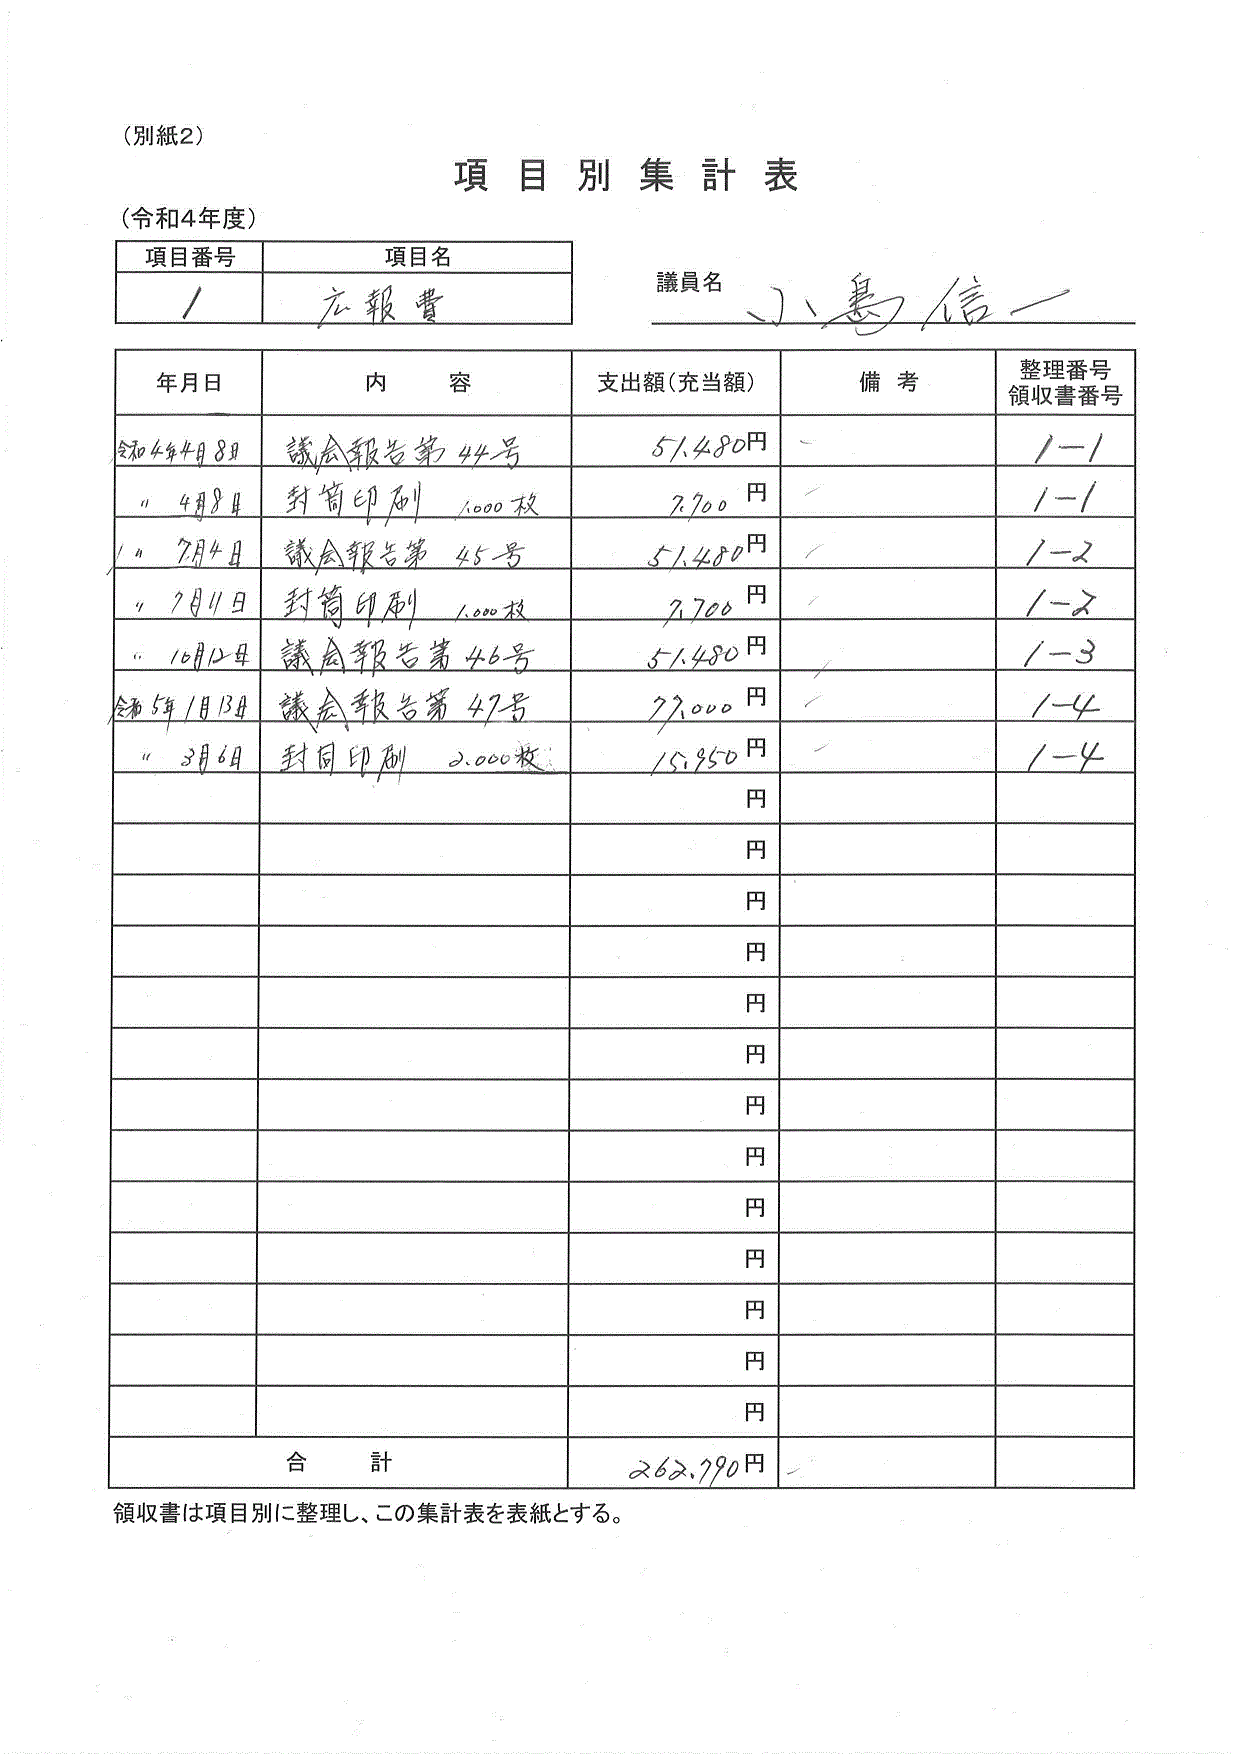 （別紙２）
項目別集計表
（令和４年度）
項目番号 項目名
1 広報費
議員名 小島信一
年月日 内容 支出額（充当額） 備考 整理番号 領収書番号
令和4年4月8日 議会報告第44号 51.480円 1-1
〃 4月8日 封筒印刷 1.000枚 7.700円 1-1
〃 7月4日 議会報告第45号 51.480円 1-2
〃 7月11日 封筒印刷 1.000枚 7.700円 1-2
〃 10月12日 議会報告第46号 51.480円 1-3
令和5年1月13日 議会報告第47号 77.000円 1-4
〃 3月6日 封同印刷 2.000枚 15.950円 1-4
円
円
円
円
円
円
円
円
円
円
円
円
円
合計 262.790円
領収書は項目別に整理し、この集計表を表紙とする。